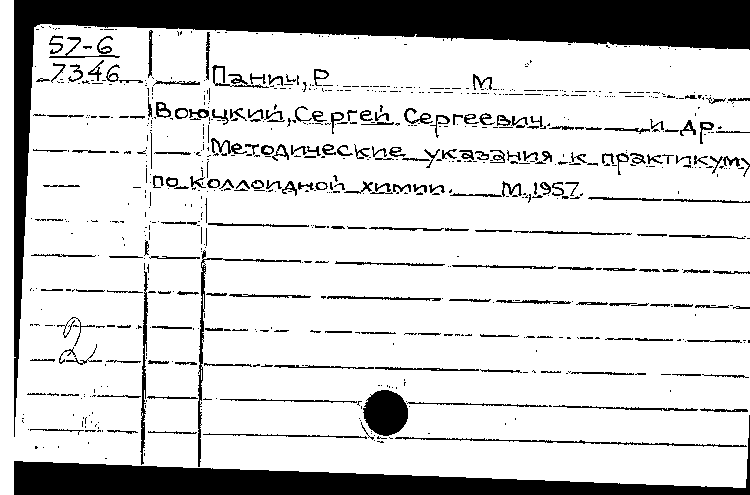 57-6
7346
Панич, Р М
Воюцкий, Сергей Сергеевич и др.
Методические указания к практикуму
по коллоидной химии. М, 1957.
2